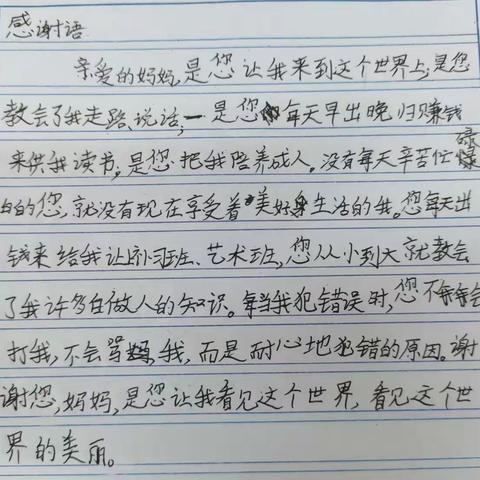 感谢语
亲爱的妈妈,是您让我来到这个世界上,是您
教会了我走路、说话,是您每天早出晚归赚钱
来供我读书,是您把我培养成人。没有每天辛苦忙碌
的您,就没有现在享受着美好生活的我。您每天出
钱来给我让补习班、艺术班,您从小到大就教会
了我许多自做人的知识。每当我犯错误时,您不会
打我,不会骂我,而是耐心地犯错的原因。谢
谢您,妈妈,是您让我看见这个世界,看见这个世
界的美丽。